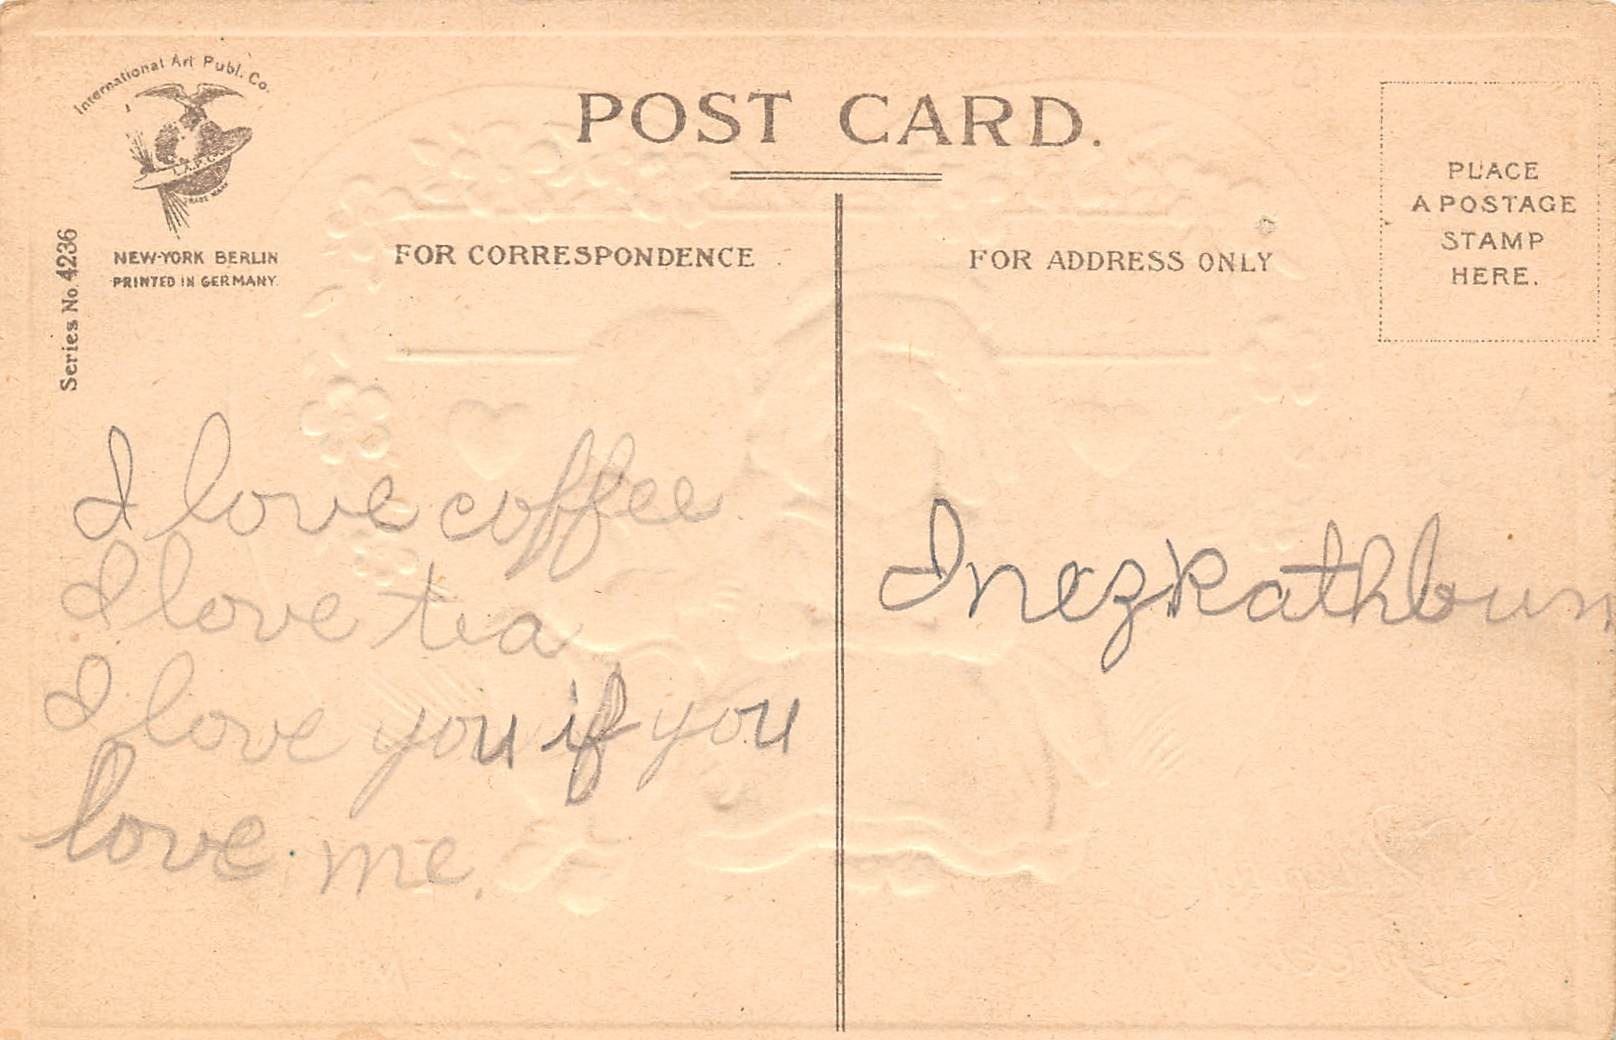 International Art Publ. Co.
I.A.P.C.
TRADE MARK
NEW-YORK BERLIN
PRINTED IN GERMANY.
Series No. 4236
POST CARD.
FOR CORRESPONDENCE
FOR ADDRESS ONLY
PLACE
A POSTAGE
STAMP
HERE.
I love coffee
I love tea
I love you if you
love me.
Inez Rathbun